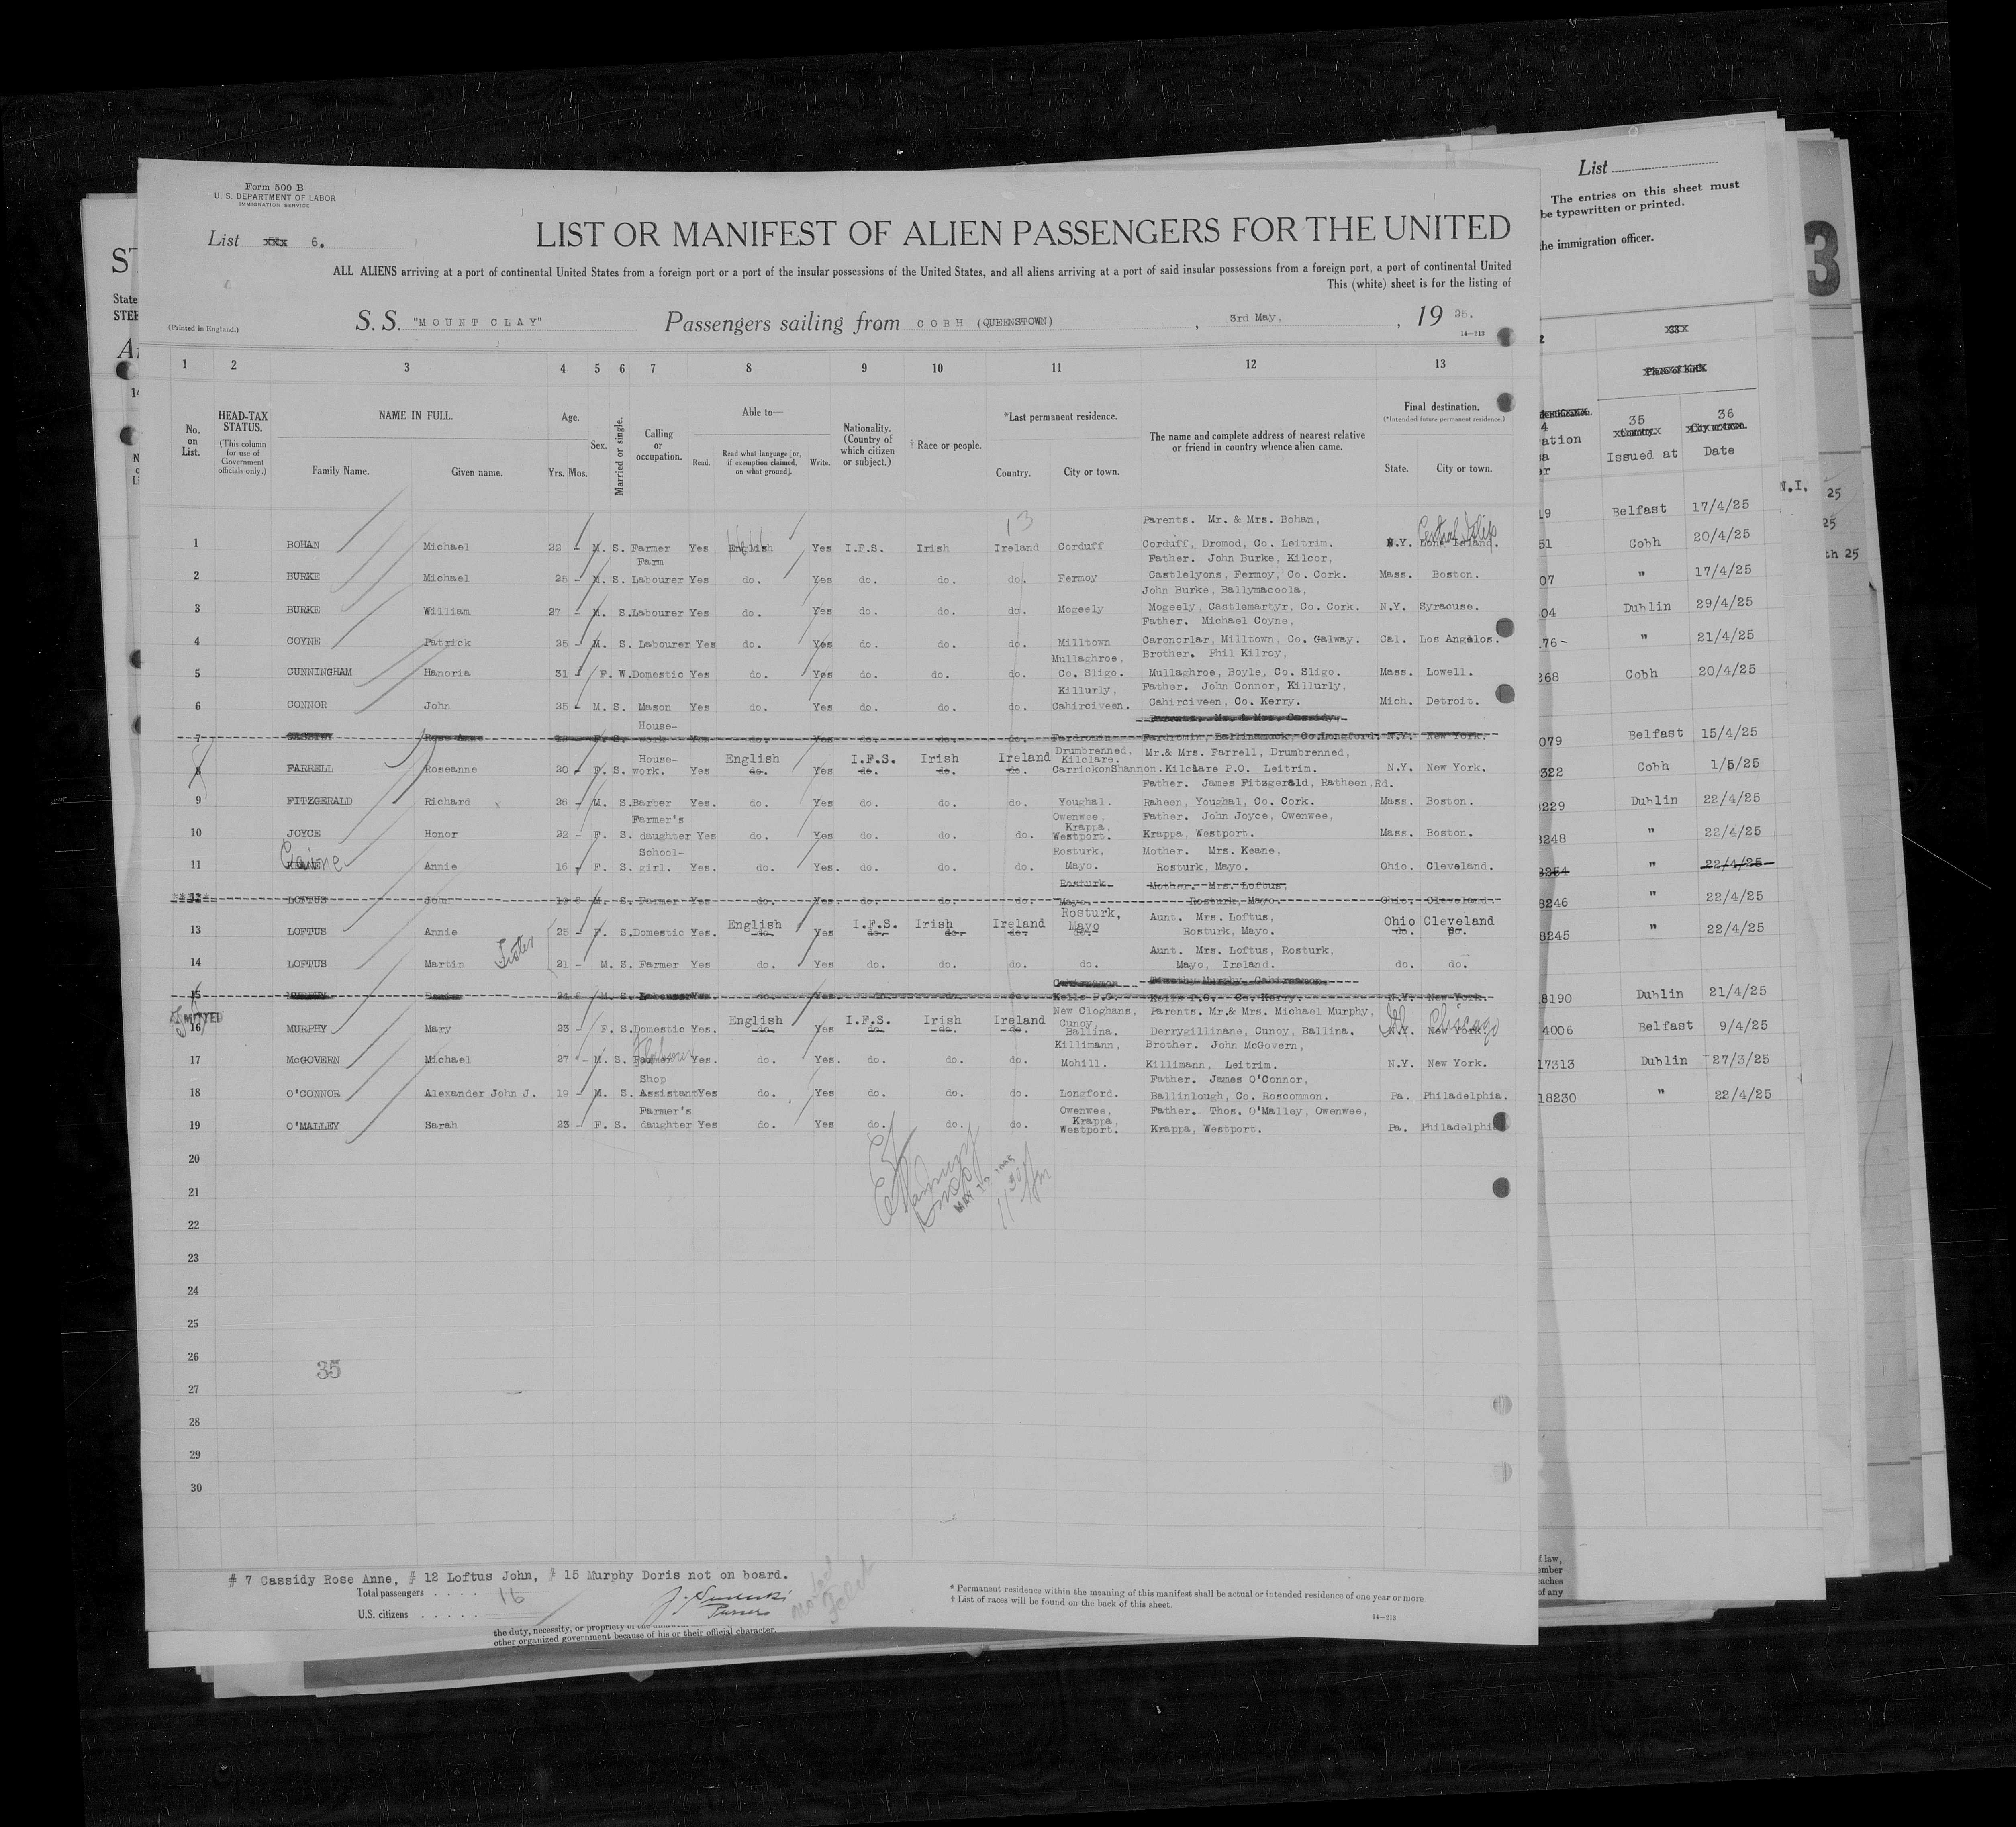 Form 500 B
U. S. DEPARTMENT OF LABOR
IMMIGRATION SERVICE
List xxx 6.
LIST OR MANIFEST OF ALIEN PASSENGERS FOR THE UNITED
ALL ALIENS arriving at a port of continental United States from a foreign port or a port of the insular possessions of the United States, and all aliens arriving at a port of said insular possessions from a foreign port, a port of continental United
This (white) sheet is for the listing of
(Printed in England.)
S. S. "MOUNT CLAY" Passengers sailing from COBH (QUEENSTOWN), 3rd May, , 19 25.
14-213
1 2 3 4 5 6 7 8 9 10 11 12 13
No. on List.
HEAD-TAX STATUS.
(This column for use of Government officials only.)
NAME IN FULL.
Family Name. Given name.
Age.
Yrs. Mos.
Sex.
Married or single.
Calling or occupation.
Able to—
Read. Read what language [or, if exemption claimed, on what ground]. Write.
Nationality. (Country of which citizen or subject.)
† Race or people.
*Last permanent residence.
Country. City or town.
The name and complete address of nearest relative or friend in country whence alien came.
Final destination.
(*Intended future permanent residence.)
State. City or town.
13
Parents. Mr. & Mrs. Bohan,
Central Islip
1 BOHAN Michael 22 - M. S. Farmer Yes English Yes I.F.S. Irish Ireland Corduff Corduff, Dromod, Co. Leitrim. N.Y. Long Island.
Farm Father. John Burke, Kilcor,
2 BURKE Michael 25 - M. S. Labourer Yes do. Yes do. do. do. Fermoy Castlelyons, Fermoy, Co. Cork. Mass. Boston.
John Burke, Ballymacoola,
3 BURKE William 27 - M. S. Labourer Yes do. Yes do. do. do. Mogeely Mogeely, Castlemartyr, Co. Cork. N.Y. Syracuse.
Father. Michael Coyne,
4 COYNE Patrick 25 - M. S. Labourer Yes do. Yes do. do. do. Milltown Caronorlar, Milltown, Co. Galway. Cal. Los Angelos.
Mullaghroe, Brother. Phil Kilroy,
5 CUNNINGHAM Hanoria 31 - F. W. Domestic Yes do. Yes do. do. do. Co. Sligo. Mullaghroe, Boyle, Co. Sligo. Mass. Lowell.
Killurly, Father. John Connor, Killurly,
6 CONNOR John 25 - M. S. Mason Yes do. Yes do. do. do. Cahirciveen. Cahirciveen, Co. Kerry. Mich. Detroit.
House- Parents. Mr. & Mrs. Cassidy,
7 CASSIDY Rose Anne F. S. work Yes do. Yes do. do. do. Fardromin Fardromin, Ballinamuck, Co.Longford. N.Y. New York.
House- English I.F.S. Irish Ireland Drumbrenned, Kilclare. Mr.& Mrs. Farrell, Drumbrenned,
8 FARRELL Roseanne 20 - F. S. work. Yes do. Yes do. do. do. CarrickonShannon. Kilclare P.O. Leitrim. N.Y. New York.
Father. James Fitzgerald, Ratheen,Rd.
9 FITZGERALD Richard 26 - M. S. Barber Yes. do. Yes do. do. do. Youghal. Raheen, Youghal, Co. Cork. Mass. Boston.
Farmer's Owenwee, Krappa, Father. John Joyce, Owenwee,
10 JOYCE Honor 22 - F. S. daughter Yes do. Yes do. do. do. Westport. Krappa, Westport. Mass. Boston.
School- Rosturk, Mother. Mrs. Keane,
11 KEANE Annie 16 F. S. girl. Yes. do. Yes. do. do. do. Mayo. Rosturk, Mayo. Ohio. Cleveland.
Rosturk, Mother. Mrs. Loftus,
12 LOFTUS John M. S. Farmer Yes do. Yes. do. do. do. Mayo. Rosturk, Mayo. Ohio. Cleveland.
English I.F.S. Irish Ireland Rosturk, Mayo Aunt. Mrs. Loftus, Ohio Cleveland
13 LOFTUS Annie 25 - F. S. Domestic Yes. do. Yes do. do. do. do. Rosturk, Mayo. do. do.
Sister
Aunt. Mrs. Loftus, Rosturk,
14 LOFTUS Martin 21 - M. S. Farmer Yes do. Yes do. do. do. do. Mayo, Ireland. do. do.
Timothy Murphy, Cahirnamon.
15 MURPHY M. S. Labourer Yes. do. Yes. do. do. do. Kells P.O. Kells P.O. Co. Kerry. N.Y. New York.
English I.F.S. Irish Ireland New Cloghans, Cunoy, Parents. Mr.& Mrs. Michael Murphy, Chicago
16 MURPHY Mary 23 - F. S. Domestic Yes. do. Yes do. do. do. Ballina. Derrygillinane, Cunoy, Ballina. N.Y. New York.
Killimann, Brother. John McGovern,
17 McGOVERN Michael 27 - M. S. Farmer Yes. do. Yes. do. do. do. Mohill. Killimann, Leitrim. N.Y. New York.
Shop Father. James O'Connor,
18 O'CONNOR Alexander John J. 19 - M. S. Assistant Yes do. Yes do. do. do. Longford. Ballinlough, Co. Roscommon. Pa. Philadelphia.
Farmer's Owenwee, Krappa, Father. Thos. O'Malley, Owenwee,
19 O'MALLEY Sarah 23 - F. S. daughter Yes do. Yes do. do. do. Westport. Krappa, Westport. Pa. Philadelphi
20
21
22
23
24
25
26
27
28
29
30
35
# 7 Cassidy Rose Anne, # 12 Loftus John, # 15 Murphy Doris not on board.
Total passengers . . . . 16
U.S. citizens . . . . .
Pursers
* Permanent residence within the meaning of this manifest shall be actual or intended residence of one year or more.
† List of races will be found on the back of this sheet.
14-213
other organized government because of his or their official character.
List
The entries on this sheet must
be typewritten or printed.
the immigration officer.
3
35 36
Issued at Date
N.I.
19 Belfast 17/4/25
51 Cobh 20/4/25
07 " 17/4/25
04 Dublin 29/4/25
76- " 21/4/25
268 Cobh 20/4/25
079 Belfast 15/4/25
322 Cobh 1/5/25
229 Dublin 22/4/25
3248 " 22/4/25
" 22/4/25
8246 " 22/4/25
8245 " 22/4/25
8190 Dublin 21/4/25
4006 Belfast 9/4/25
17313 Dublin 27/3/25
18230 " 22/4/25
25
25
th 25